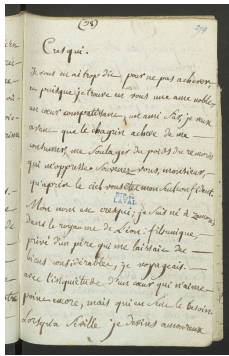 (28)
Cresqui.
Je vous en ai trop dit pour ne pas achever
puisque je trouve en vous une ame noble,
un cœur compatissant, un ami sûr, je veux
avant que le chagrin acheve de me
consumer, me soulager du poids du remords
qui m'oppresse. Souvenez-vous, monsieur,
qu'après le ciel vous êtes mon seul confident.
BIB. DE
LAVAL
Mon nom est Cresqui; je suis né à Zamora,
dans le royaume de Léon. fils unique,
privé d'un père qui me laissait de
biens considérables, je voyageais
avec l'inquiétude d'un cœur qui n'aime
point encore, mais qui en sent le besoin.
Lorsqu'à Séville je devins amoureux